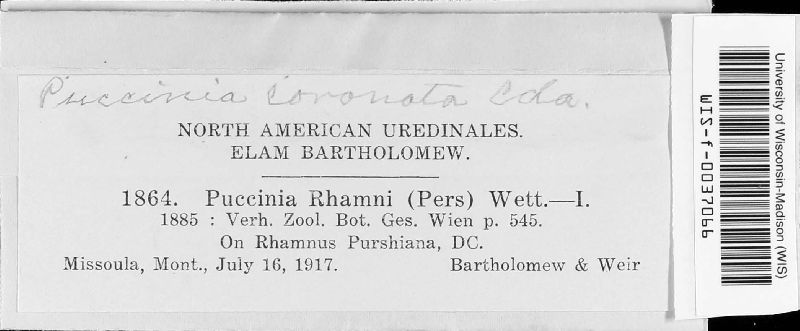 Puccinia coronata Cda.
NORTH AMERICAN UREDINALES.
ELAM BARTHOLOMEW.
1864. Puccinia Rhamni (Pers) Wett.—I.
1885 : Verh. Zool. Bot. Ges. Wien p. 545.
On Rhamnus Purshiana, DC.
Missoula, Mont., July 16, 1917. Bartholomew & Weir
University of Wisconsin-Madison (WIS)
WIS-f-0037066